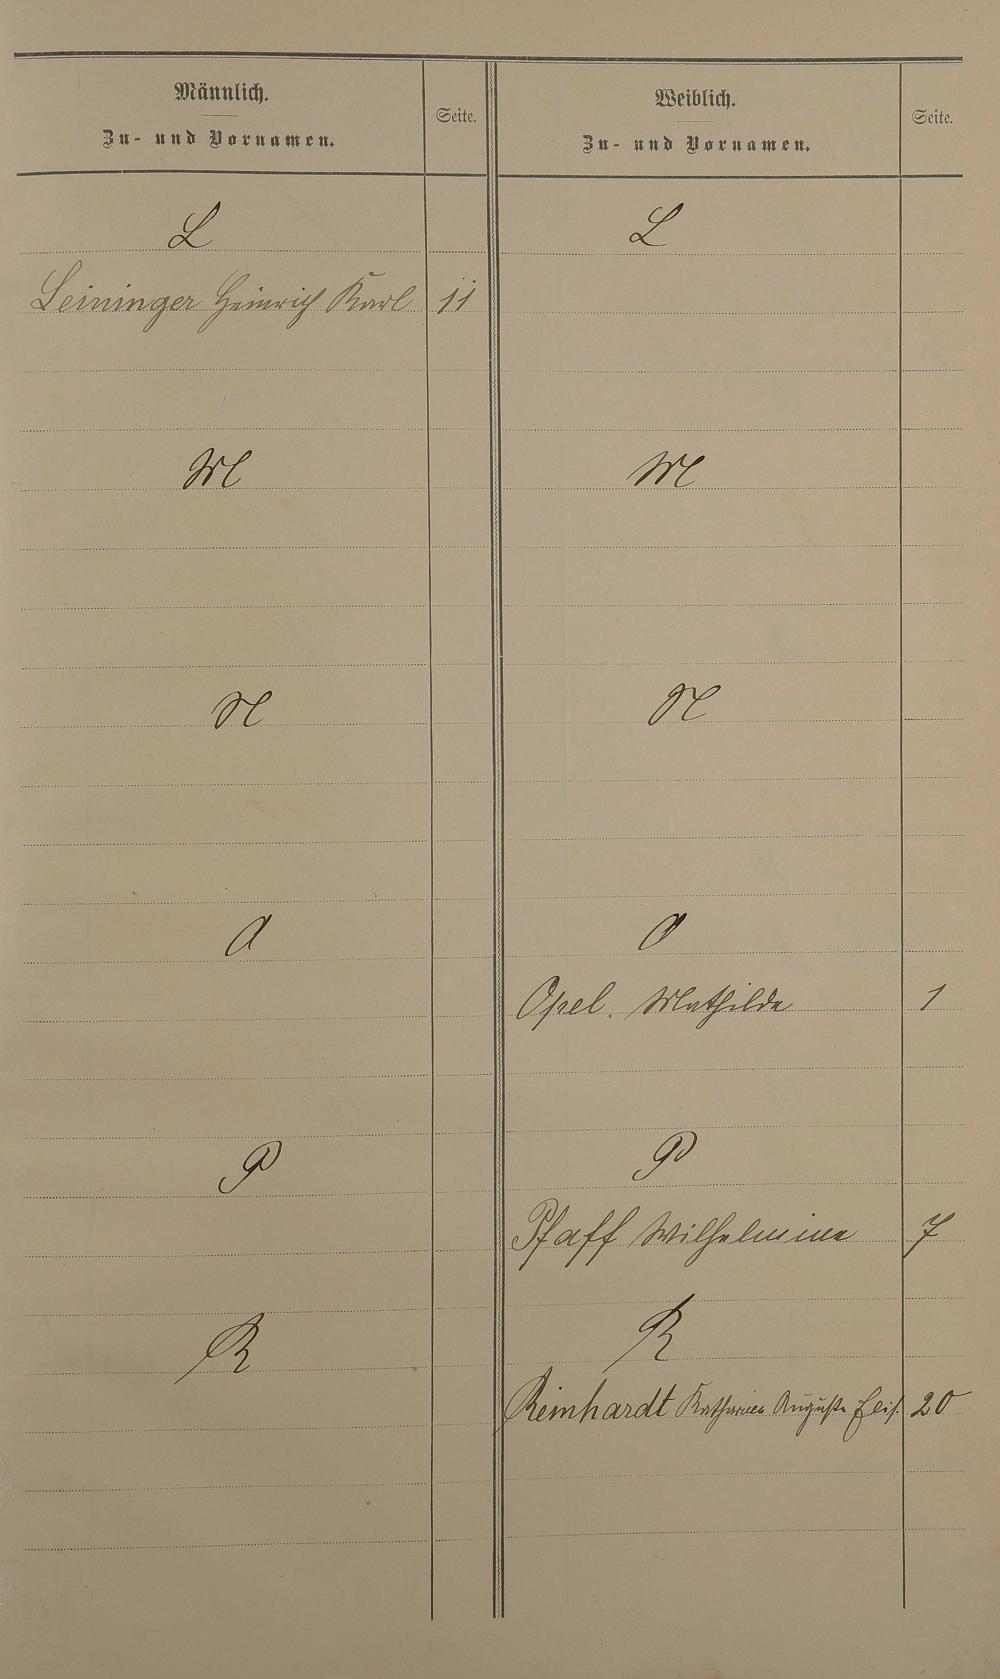 Männlich.
Zu- und Vornamen.
Seite.
Weiblich.
Zu- und Vornamen.
Seite.
L
L
Leininger Heinrich Karl 11
M
M
N
N
O
O
Opel. Mathilde 1
P
P
Pfaff Wilhelmine 7
R
R
Reinhardt Katharina Auguste 20